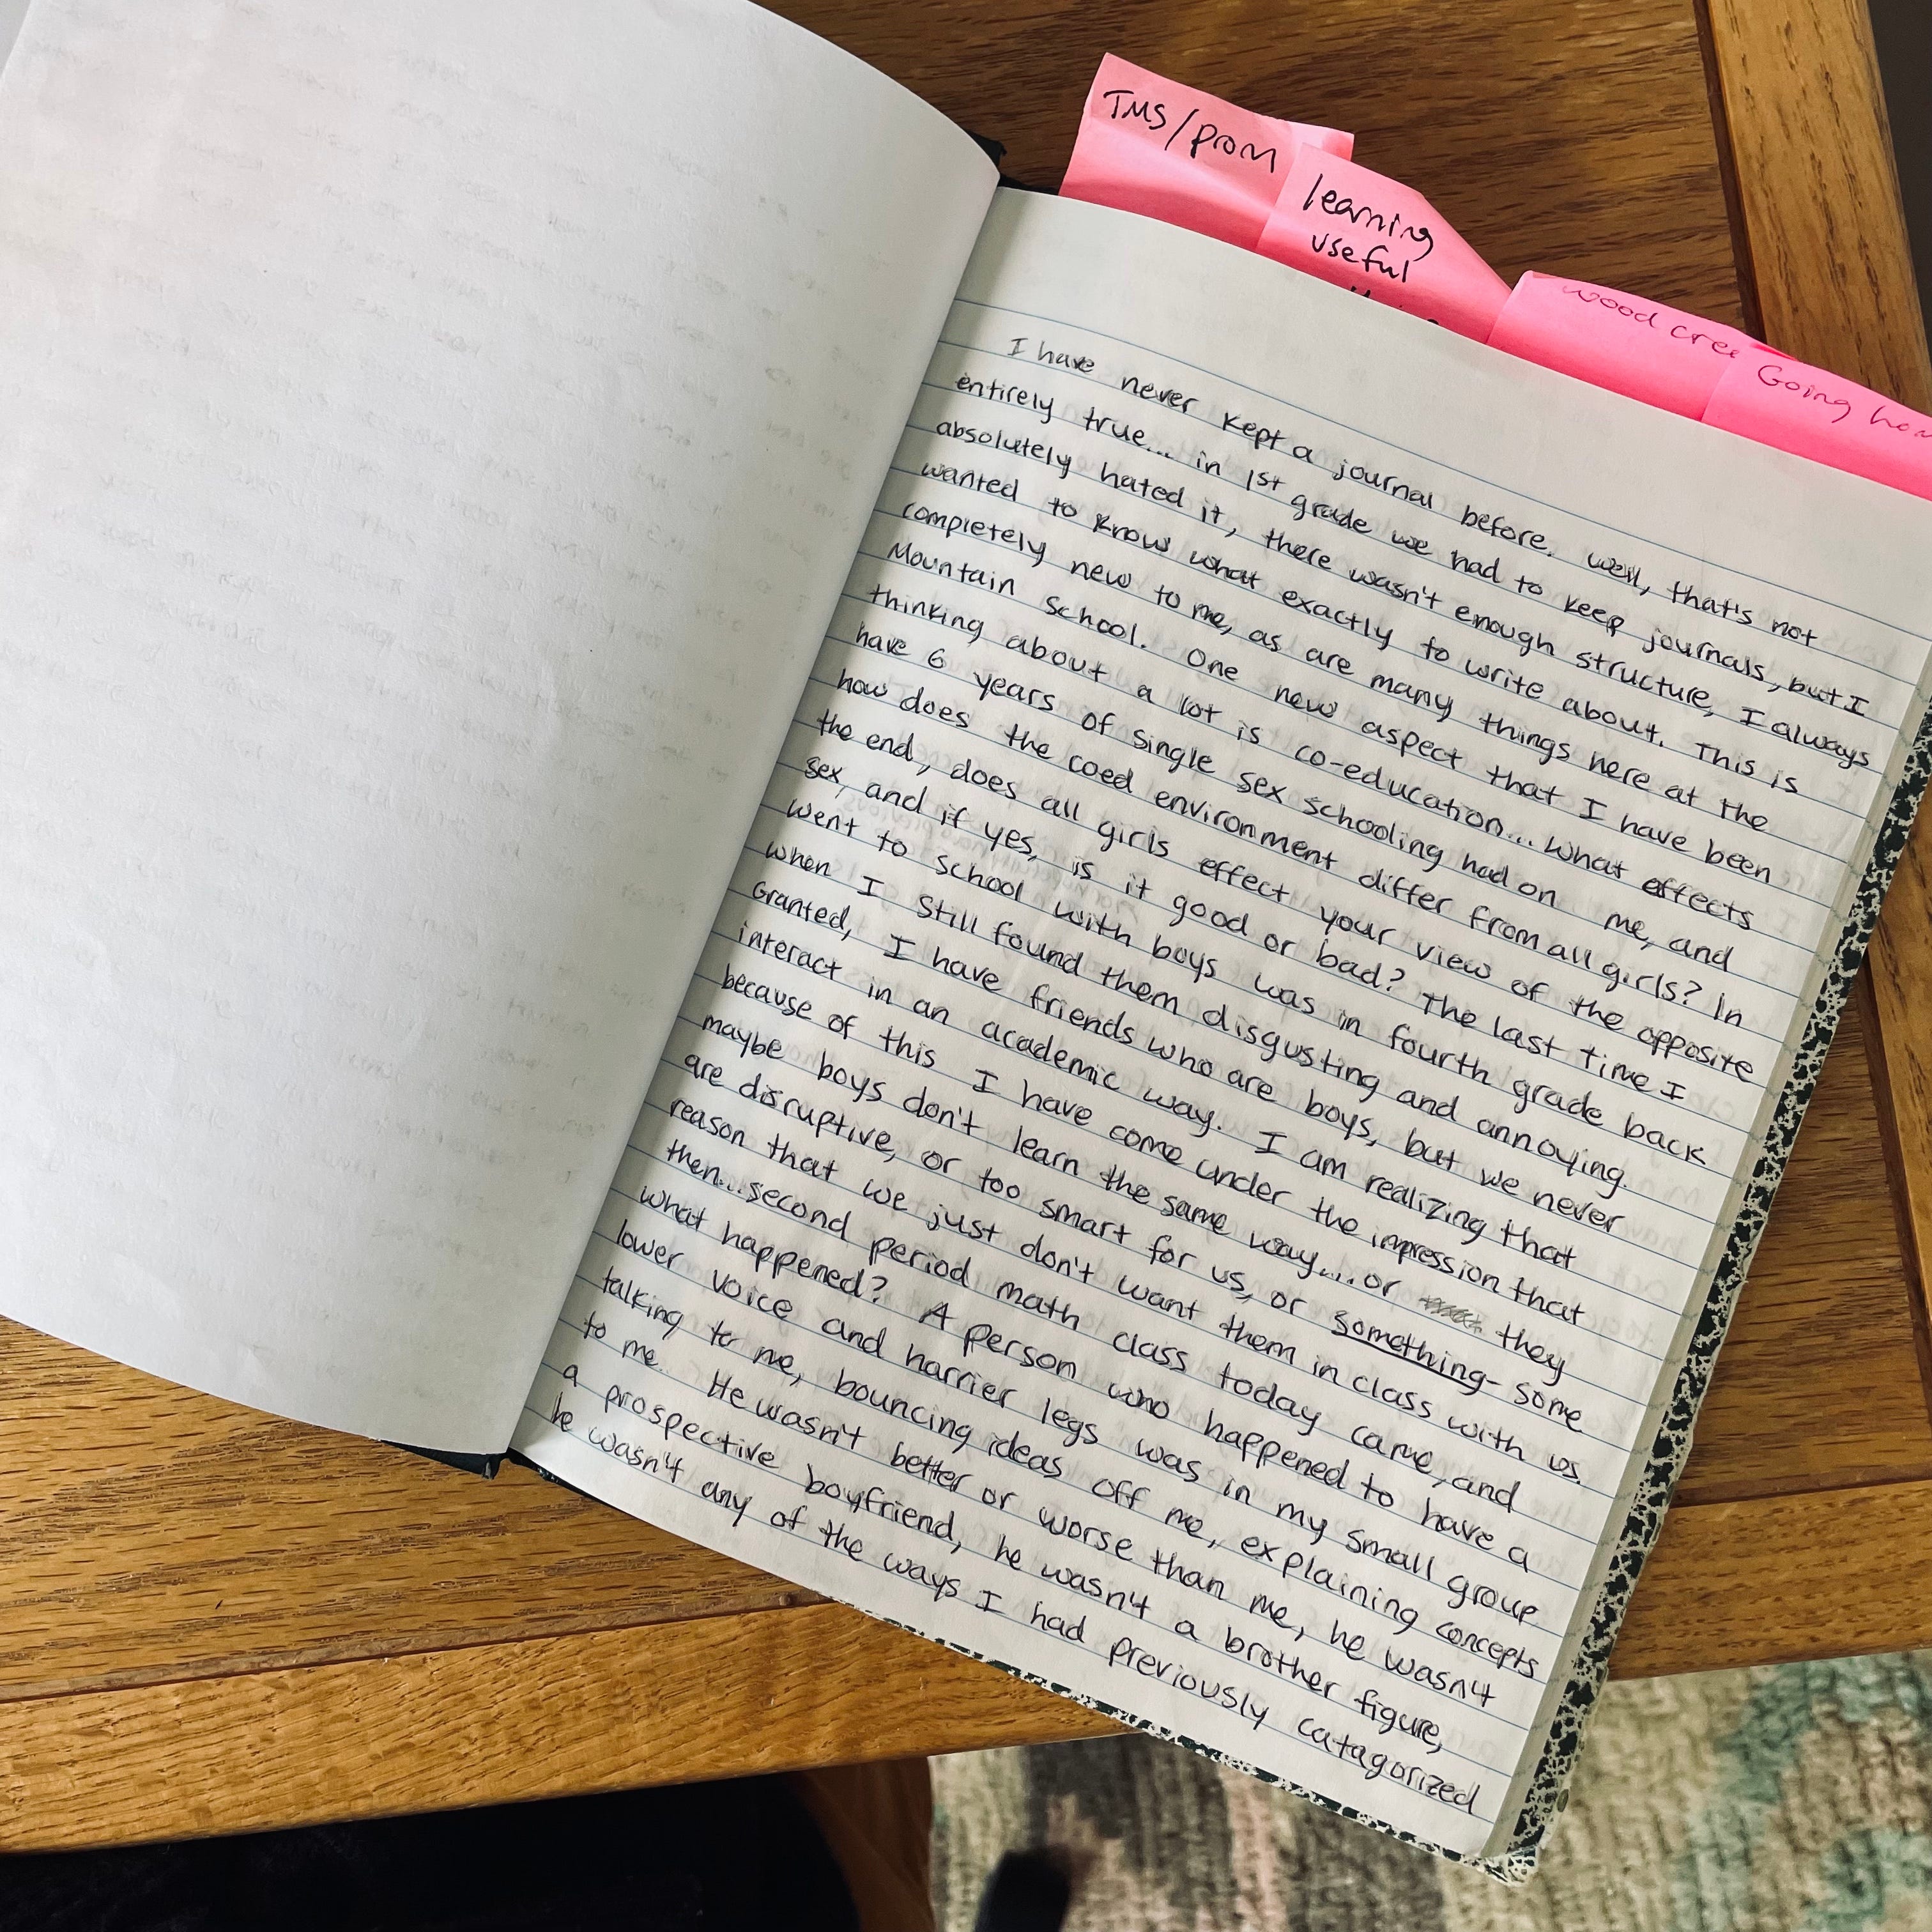 TMS/prom
learning
useful
wood cree
Going hom
I have never kept a journal before. well, that's not
entirely true... in 1st grade we had to keep journals, but I
absolutely hated it, there wasn't enough structure, I always
wanted to know what exactly to write about. This is
completely new to me, as are many things here at the
Mountain School. One new aspect that I have been
thinking about a lot is co-education... what effects
have 6 years of single sex schooling had on me, and
how does the coed environment differ from all girls? In
the end, does all girls effect your view of the opposite
sex, and if yes, is it good or bad? The last time I
went to school with boys was in fourth grade back
when I still found them disgusting and annoying.
Granted, I have friends who are boys, but we never
interact in an academic way. I am realizing that
because of this I have come under the impression that
maybe boys don't learn the same way.... or they
are disruptive, or too smart for us, or something- some
reason that we just don't want them in class with us.
then... second period math class today came, and
what happened? A person who happened to have a
lower voice and harrier legs was in my small group
talking to me, bouncing ideas off me, explaining concepts
to me. He wasn't better or worse than me, he wasn't
a prospective boyfriend, he wasn't a brother figure,
he wasn't any of the ways I had previously catagorized